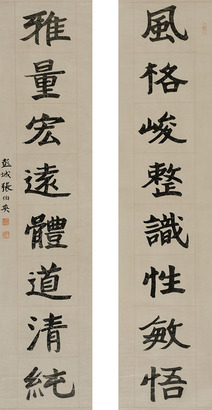 風格峻整識性敏悟
雅量宏遠體道清純
彭城張伯英